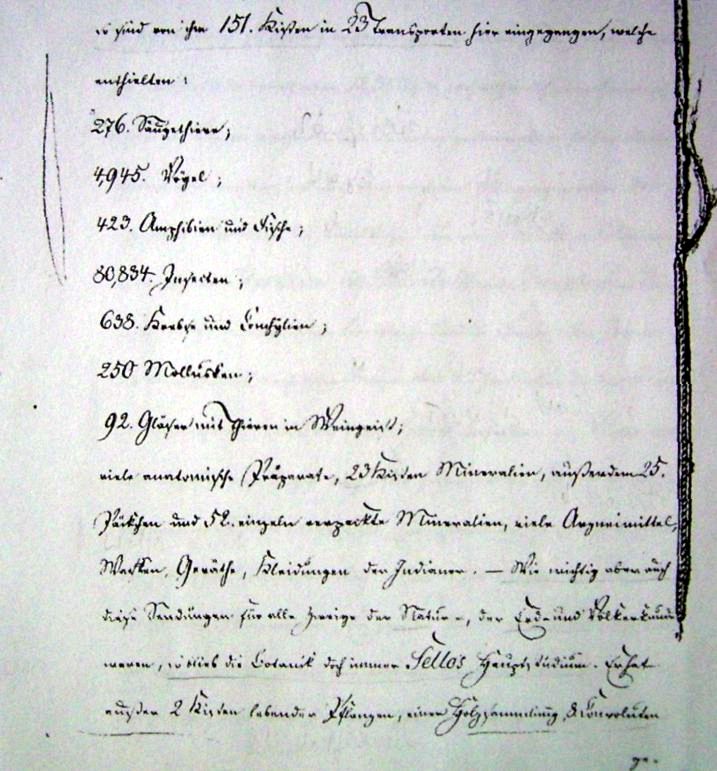 es sind von ihm 151. Kisten in 23 Transporten hier eingegangen, welche
enthielten:
276. Säugethiere;
4,945. Vögel;
423. Amphibien und Fische;
80,834. Insecten;
638. Krebse und Conchylien;
250 Mollusken;
92. Gläser mit Thieren in Weingeist;
viele anatomische Präparate, 23 Kisten Mineralien, außerdem 25.
Päckchen und 52. einzeln verpackte Mineralien, viele Arzneimittel,
Waffen, Geräthe, Kleidungen der Indianer. — Wie wichtig aber auch
diese Sendungen für alle Zweige der Natur-, der Erd- und Völkerkunde
waren, so blieb die Botanik doch immer Sellos Hauptstudium. Er hat
außer 2 Kisten lebender Pflanzen, einer Holzsammlung, & Convoluten
ge-